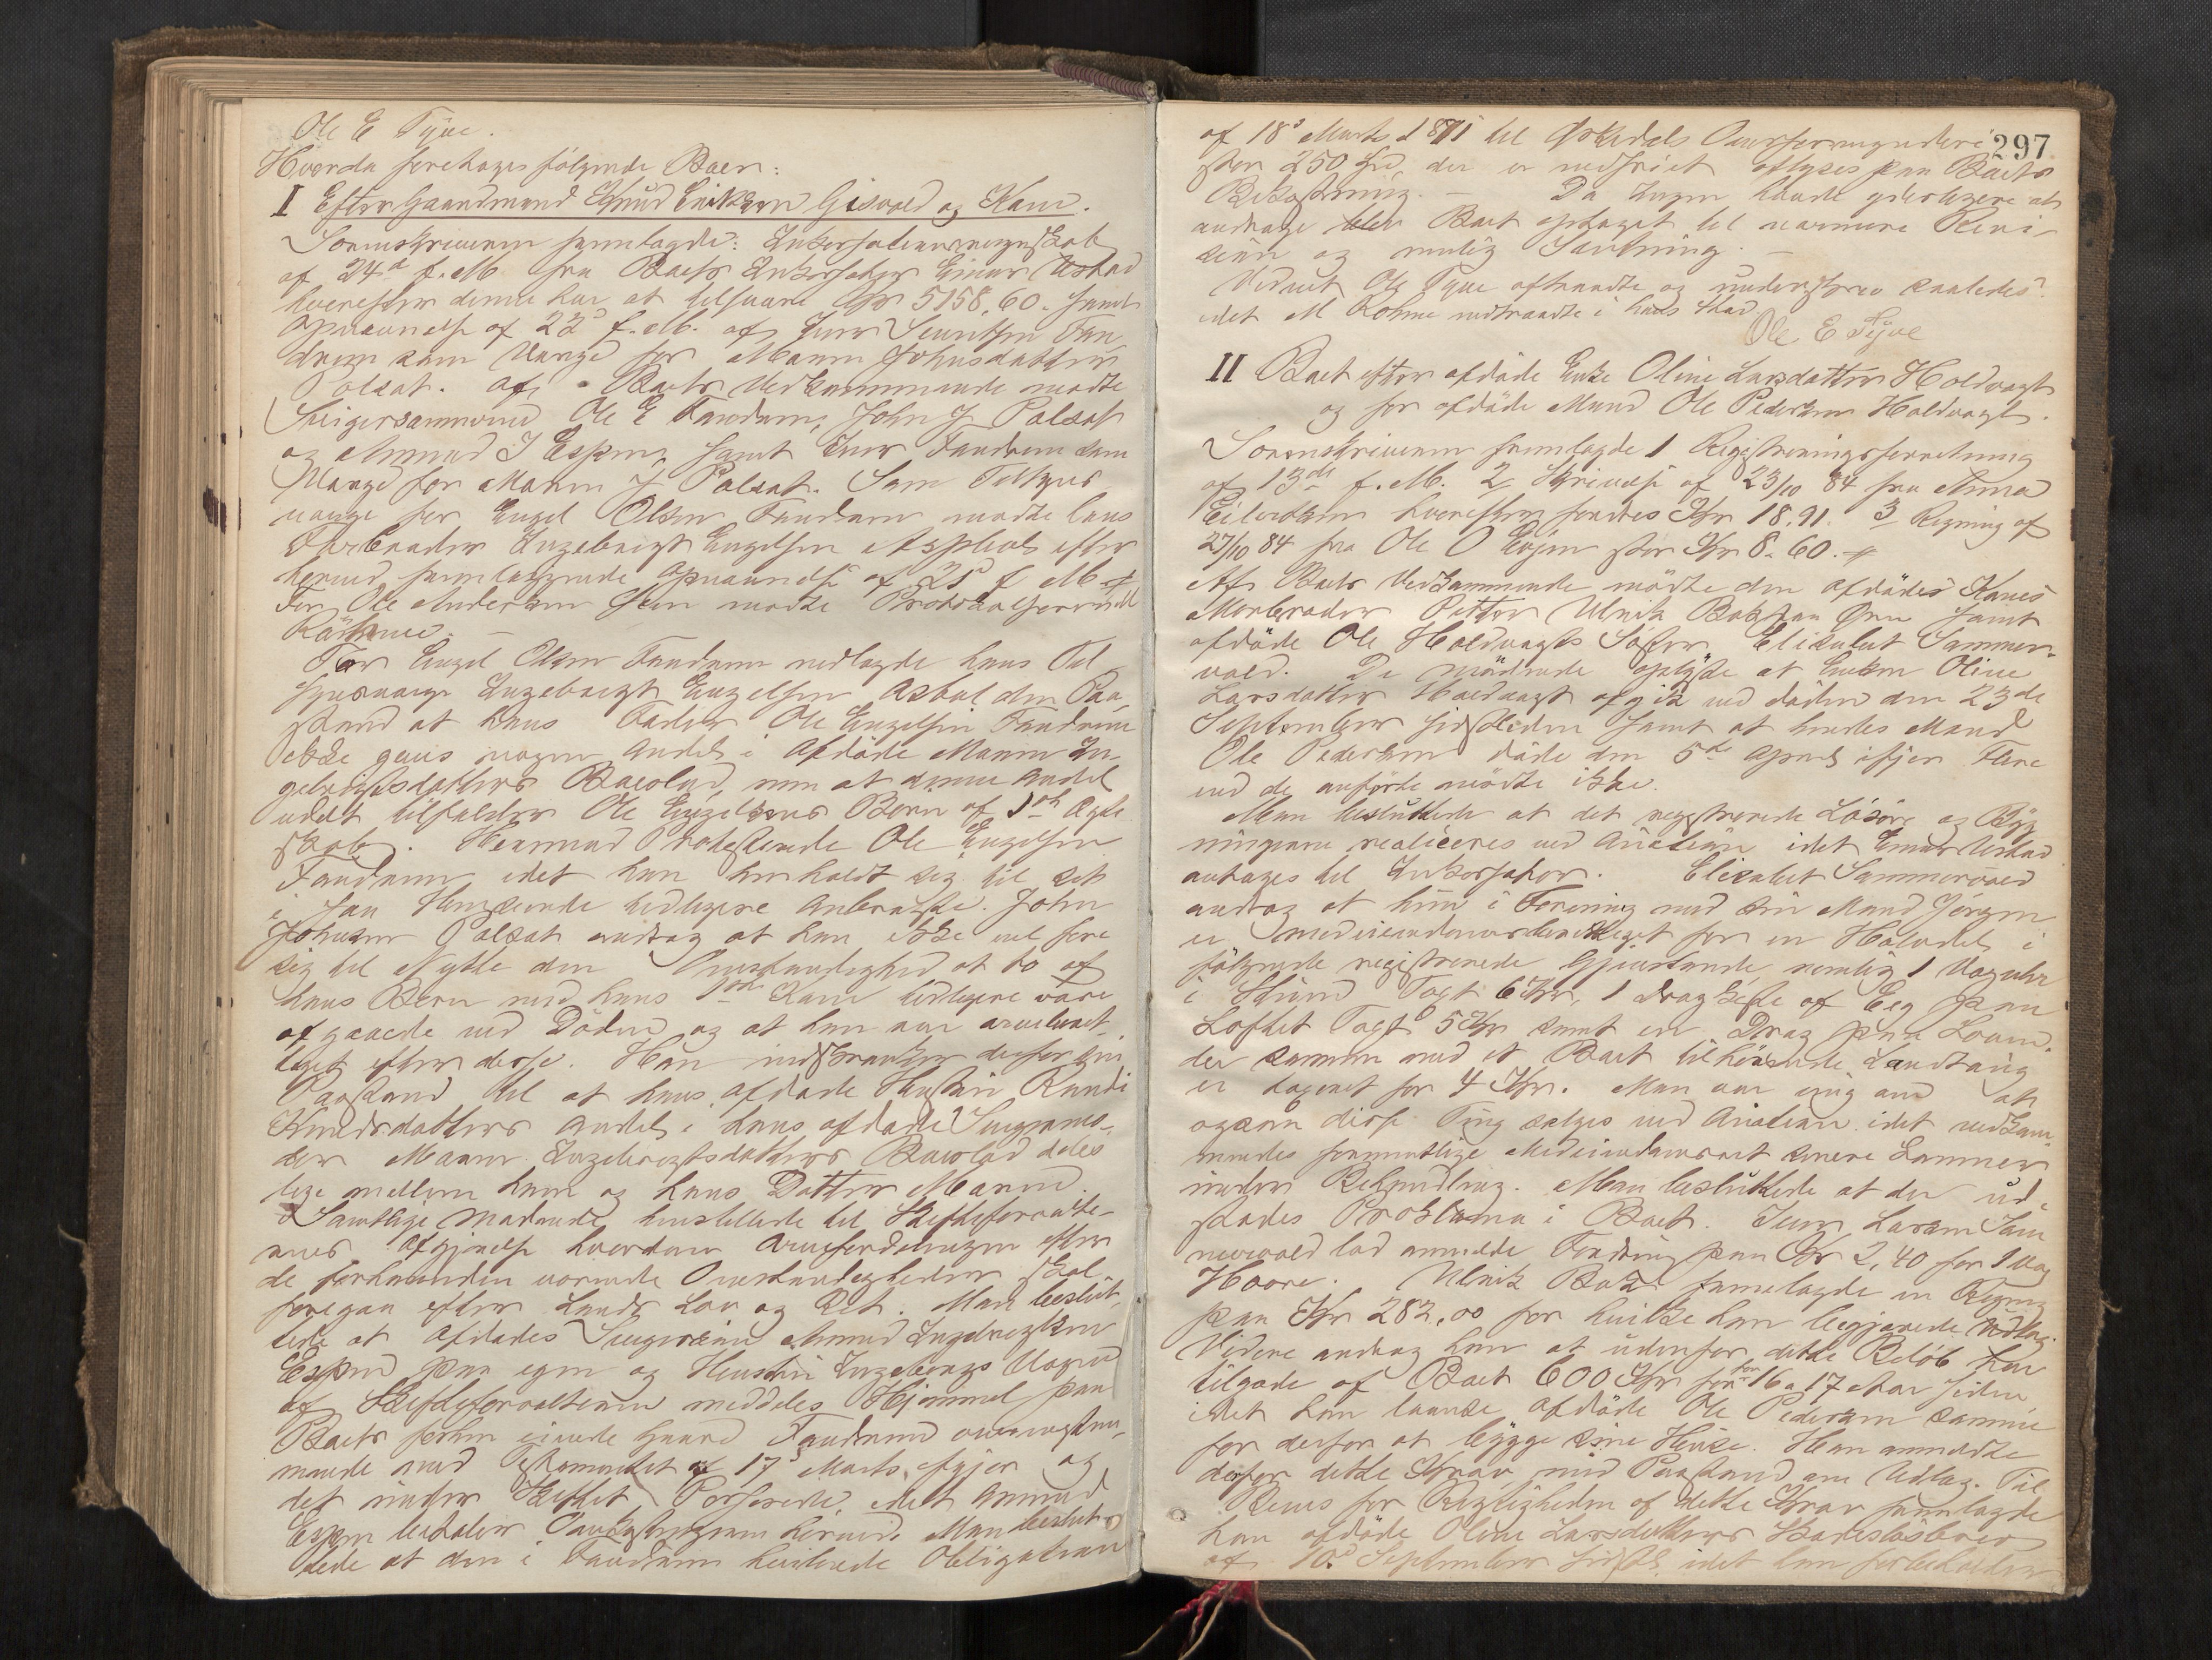 Ole E Tyve.
Hvorda foretoges følgende Boer:
I Efter Gaardmand Knud Eriksen Gisvold og Kone.
Sorenskriveren fremlagde: Inkassationsregnskab
af 24de f. M. fra Boets Inkassator Einar Ustad
hvorefter denne har at tilsvare Kr 5158,60. samt
Opnævnelse af 22d f. M. af Iver Fan-
drem som Værge for Maren Johnsdatter
Polsat. Af Boets Vedkommende mødte
Svigersønnerne Ole E Fandrem, John J Polsat
og Amund I Espen, samt Iver Fandrem som
Værge for Maren J Polsat. Som Tilsyns
værge for Engel Olsen Fandrem mødte hans
Farbroder Ingebrigt Engelsen Asphol efter
herved fremlæggende Opnævnelse af 25d f M
For Ole Andersen mødte Prokuratorfuldm
Röhme. —
For Engel Olsen Fandrem nedlagde hans Til-
synsværge Ingebrigt Engelsen Asbøl den Paa-
stand at hans Fader Ole Engelsen Fandrem
ikke gives nogen Andel i Afdøde Maren In-
gebrigtsdatters Boeslod, men at denne Andel
udelt tilfalder Ole Engelsens Børn af 1ste Ægte
skab. Herimod Protesterede Ole Engelsen
Fandrem idet han henholdt sig til det
i saa Henseende tidligere Anbragte. John
Johnsen Polsat androg at han ikke vil føre
sig til Nytte den Omstændighed at to af
hans Børn med hans 1ste Kone tidligere vare
afgaaede ved Døden og at han var arveberet-
tiget efter disse. Han indskrænker derfor sin
Paastand til at hans afdøde Hustru Randi
Knudsdatters Andel i hans afdøde Svigermo-
der Maren Ingebrigtsdatters Boeslod deles
lige mellem ham og hans Datter Maren.
Samtlige Mødende henstillede til Skifteforvalte-
rens Afgjørelse hvordan Arvefordelingen efter
de forhaanden værende Omstændigheder skal
foregaa efter Lands Lov og Ret. Man beslut-
tede at Afdødes Svigersøn Amund Ingebrigtsen
Espen paa egen og Hustru Ingeborgs Vegne
af Skifteforvalteren meddeles Hjemmel paa
Boets forhen eiende Gaard Fandrem overensstem-
mende med Testamentet af 17d Marts ifjor og
det under Skiftet Passerede, idet Amund
Espen betaler Omkostningerne herved. Man beslut-
tede at den i Fandrem heftende Obligation
297
af 18d Marts 1871 til Opdals Overformynderi
stor 250 Spd, der er indfriet aflyses paa Boets
Bekostning. — Da Ingen havde yderligere at
andrage blev Boet optaget til nærmere Revi-
sion og mulig Slutning. —
Vidnet Ole Tyve aftraadte og underskrev saaledes
idet M Rohme indtraadte i hans Sted.
Ole E Tyve
II Boet efter afdøde Enke Oline Larsdatter Holdvagt
og før afdøde Mand Ole Pedersen Holdvagt.
Sorenskriveren fremlagde 1 Registreringsforretning
af 13de f. M. 2 Skrivelse af 23/10 84 fra Anna
Eilertsen hvorefter fordres Kr 18.91. 3 Regning af
27/10 84 fra Ole O Evjen stor Kr 8.60.
Af Boets Vedkommende mødte den afdøde Kones
Morbroder Petter Ulrik Bak paa Øren samt
afdøde Ole Holdvagts Søster Elisabet Sammer-
vold. De mødende oplyste at Enken Oline
Larsdatter Holdvagt afgik ved døden den 23de
September sidstleden samt at hendes Mand
Ole Pedersen døde den 5te April ifjor. Flere
end de anførte mødte ikke.
Man besluttede at det registrerede Løsøre og Byg-
ningerne realiseres ved Auction idet Einar Ustad
antages til Inkassator. Elisabet Sammervold
androg at hun i Forening med sin Mand Jørgen
er medeiendomsberettiget for en Halvdel i
følgende registrerede Gjenstande nemlig 1 Væguhr
i Stuen Taxt 6 Kr, 1 Dragkiste af Eeg paa
Loftet Taxt 5 Kr samt en Drag paa Loven
der sammen med et Boet tilhørende Landtøug
er taxeret for 4 Kr. Man var enig om at
ogsaa disse Ting sælges ved Auction idet vedkom-
mendes formentlige Medeiendomsret senere kommer
under Behandling. Man besluttede at der ud-
stedes Proklama i Boet. Iver Larsen Sam-
mervold lod anmelde Fordring paa Kr 2,40 for 1 Vog
. Ulrik Bak fremlagde en Regning
paa Kr 282,00 for hvilke han begjærede Udlæg.
Videre androg han at udenfor dette Beløb har
tilgode af Boet 600 Kr for 16 a 17 Aar siden
idet han laante afdøde Ole Pedersen samme
for derfor at bygge sine Huse. Han anmeldte
derfor dette Krav med Paastand om Udlæg. Til
Bevis for Rigtigheden af dette Krav fremlagde
han afdøde Oline Larsdatters
af 10d September sidstl. idet han forbeholder